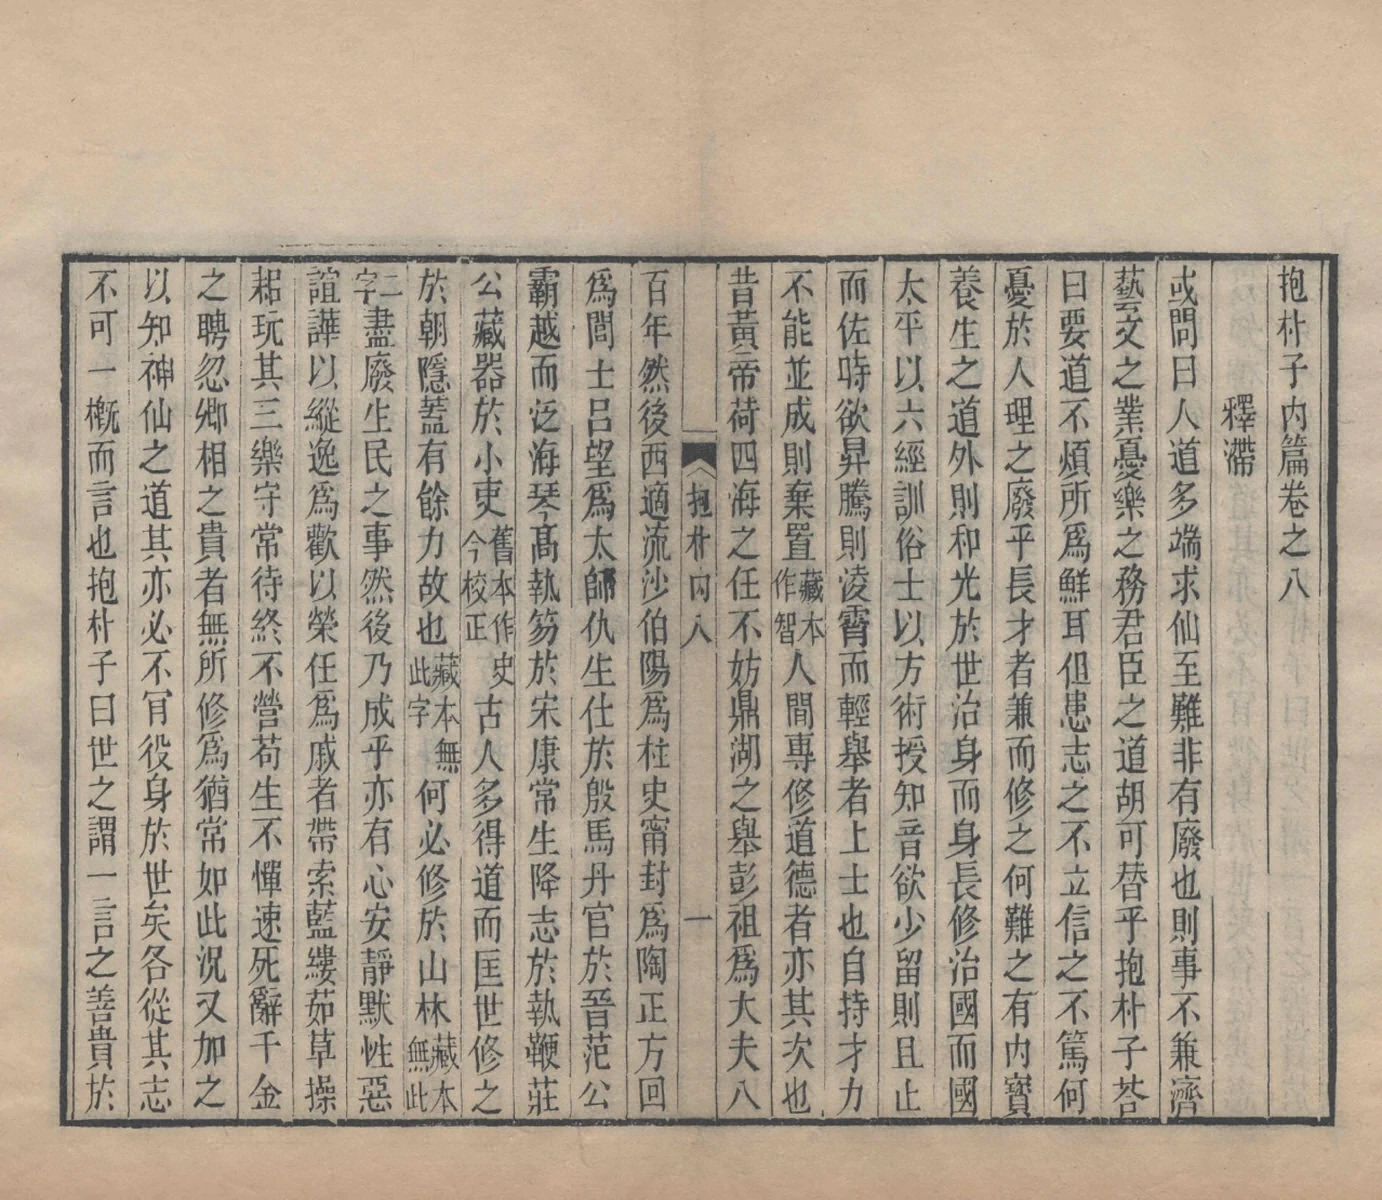 抱朴子內篇卷之八
釋滯
或問曰人道多端求仙至難非有廢也則事不兼濟
藝文之業憂樂之務君臣之道胡可替乎抱朴子荅
曰要道不煩所爲鮮耳但患志之不立信之不篤何
憂於人理之廢乎長才者兼而修之何難之有內寶
養生之道外則和光於世治身而身長修治國而國
太平以六經訓俗士以方術授知音欲少留則且止
而佐時欲昇騰則淩霄而輕舉者上士也自持才力
不能並成則棄置藏本作智人間專修道德者亦其次也
昔黃帝荷四海之任不妨鼎湖之舉彭祖爲大夫八
抱朴內八 一
百年然後西適流沙伯陽爲柱史甯封爲陶正方回
爲閭士呂望爲太師仇生仕於殷馬丹官於晉范公
霸越而泛海琴髙執笏於宋康常生降志於執鞭莊
公藏器於小吏舊本作史今校正古人多得道而匡世修之
於朝隱蓋有餘力故也藏本無此字何必修於山林藏本無此
二字盡廢生民之事然後乃成乎亦有心安靜默性惡
諠譁以縱逸爲歡以榮任爲戚者帶索藍縷茹草操
耜玩其三樂守常待終不營苟生不憚速死辭千金
之聘忽卿相之貴者無所修爲猶常如此況又加之
以知神仙之道其亦必不肎役身於世矣各從其志
不可一槪而言也抱朴子曰世之謂一言之善貴於